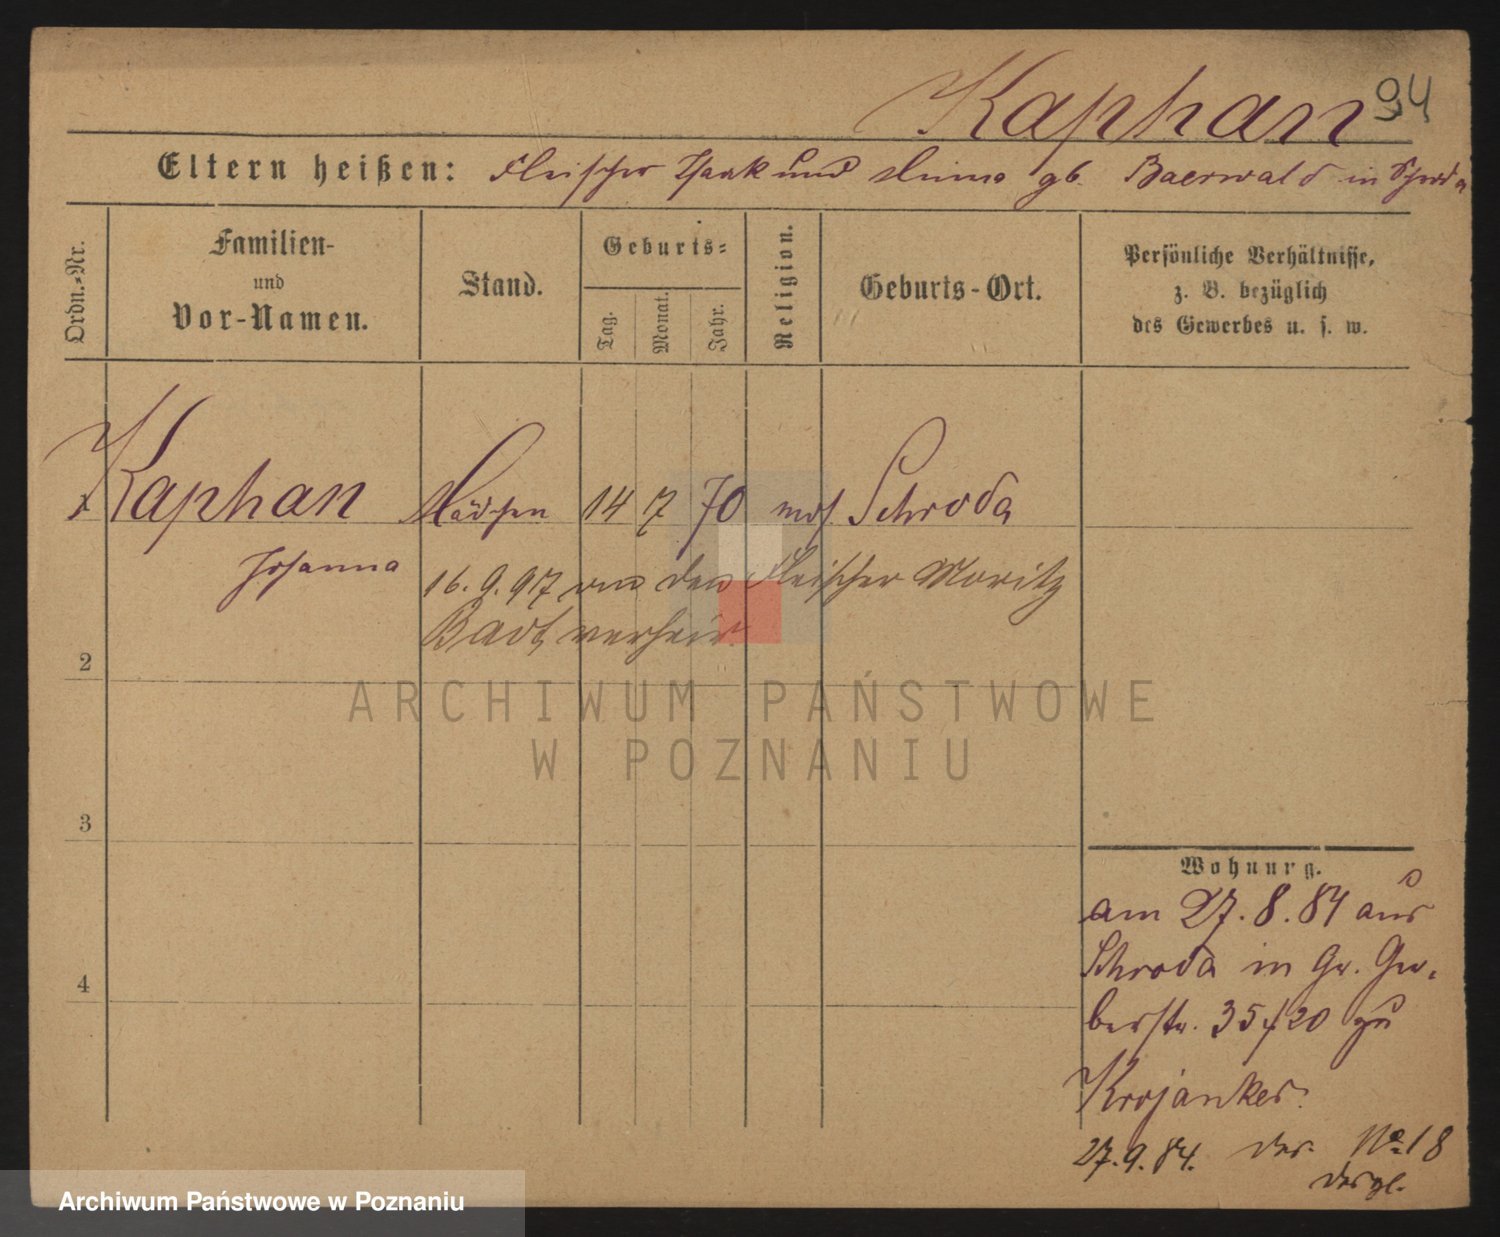 Kaphan 94
Eltern heißen: Fleischer Isaak und Minna gb. Baerwald in Schroda
Ordn.-Nr.
Familien-
und
Vor-Namen.
Stand.
Geburts-
Tag.
Monat.
Jahr.
Religion.
Geburts-Ort.
Persönliche Verhältnisse,
z. B. bezüglich
des Gewerbes u. s. w.
1 Kaphan Mädchen 14 7 70 mos. Schroda
Johanna
16.9.97 an den Fleischer Moritz
Badt verheir.
2
ARCHIWUM PAŃSTWOWE
W POZNANIU
3
4
Wohnung.
am 27.8.84 aus
Schroda in Gr. Ger-
berstr. 35/20 zu
Krojanker.
27.9.84. No 18
desgl.
Archiwum Państwowe w Poznaniu